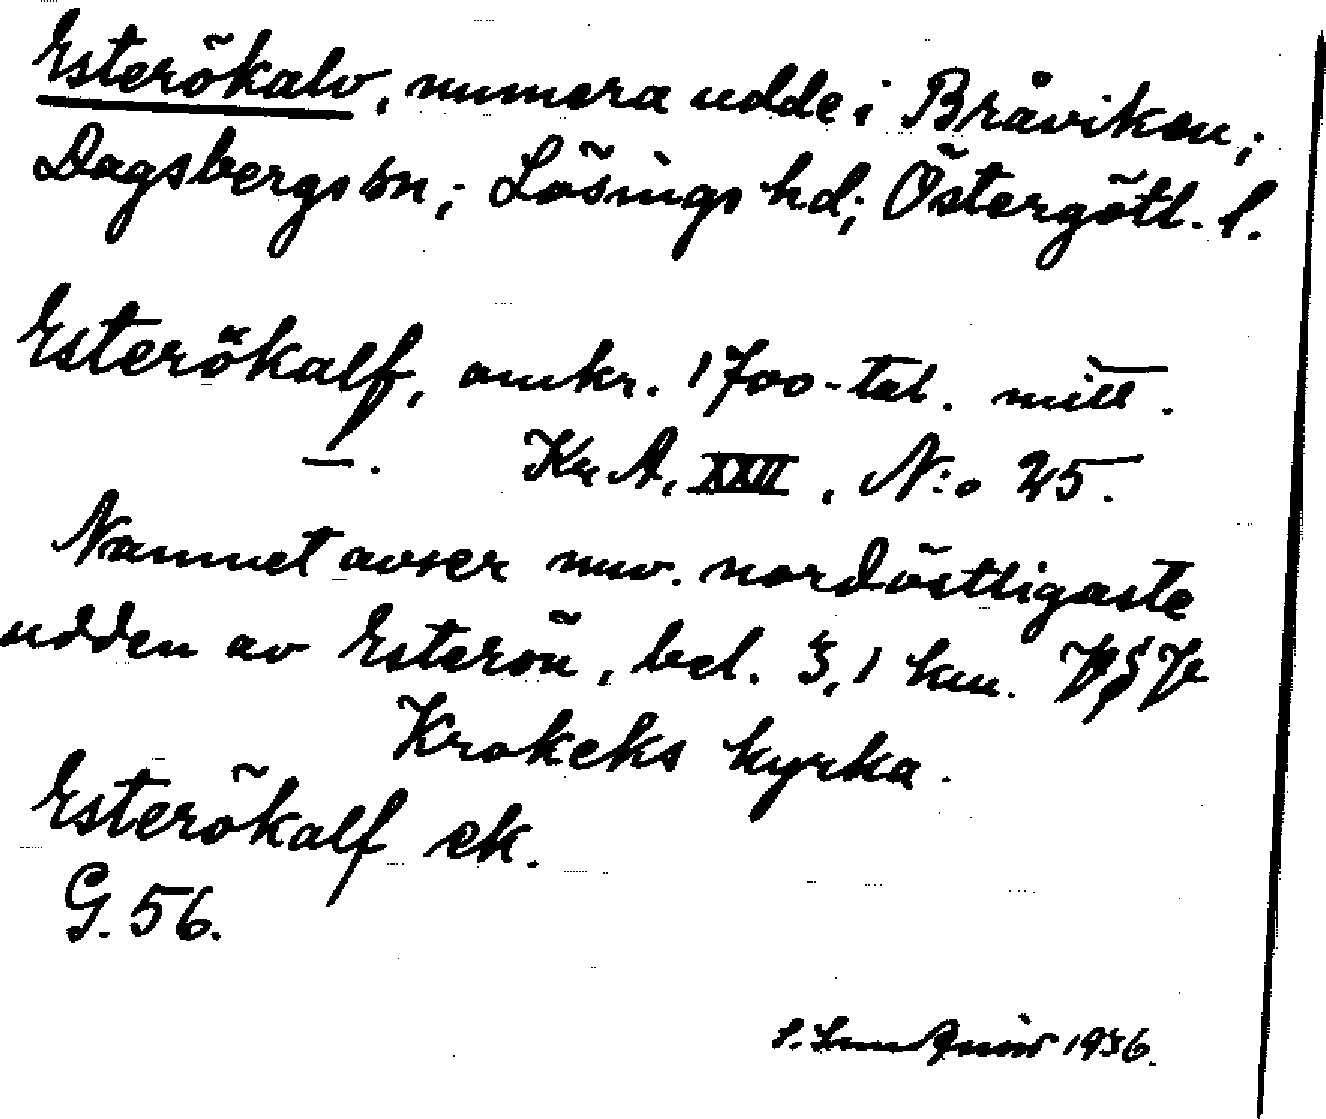 Esterökalv, numera udde i Bråviken;
Dagsbergs sn; Lösings hd; Östergötl. l.
Esterökalf, omkr. 1700-tal. mitt.
—. Kr A, XXII, N:o 25.
Namnet avser nuv. nordöstligaste
udden av Esterön, bel. 3,1 km. VSV
Krokeks kyrka.
Esterökalf ek.
G. 56.
1936.